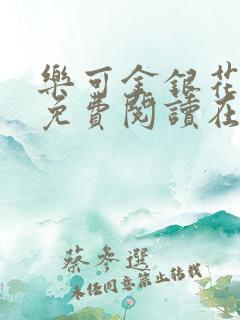 樂可金銀花
免費閱讀在
蔡參選
未经同意禁止转载